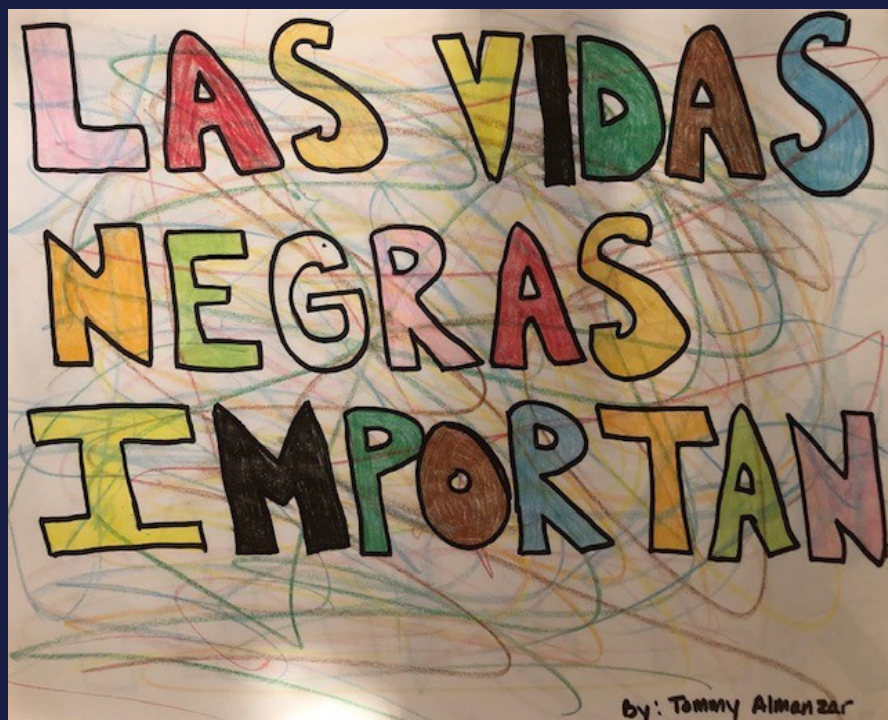 LAS VIDAS
NEGRAS
IMPORTAN
By: Tommy Almanzar